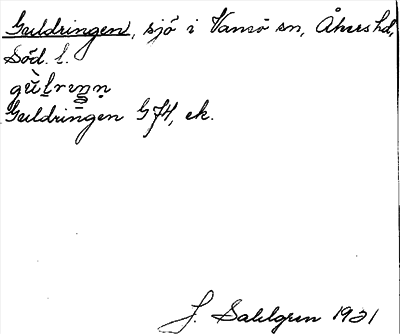 Guldringen, sjö i Vansö sn, Åkers hd,
Söd. l.
Guldringen G74, ek.
J. Sahlgren 1921